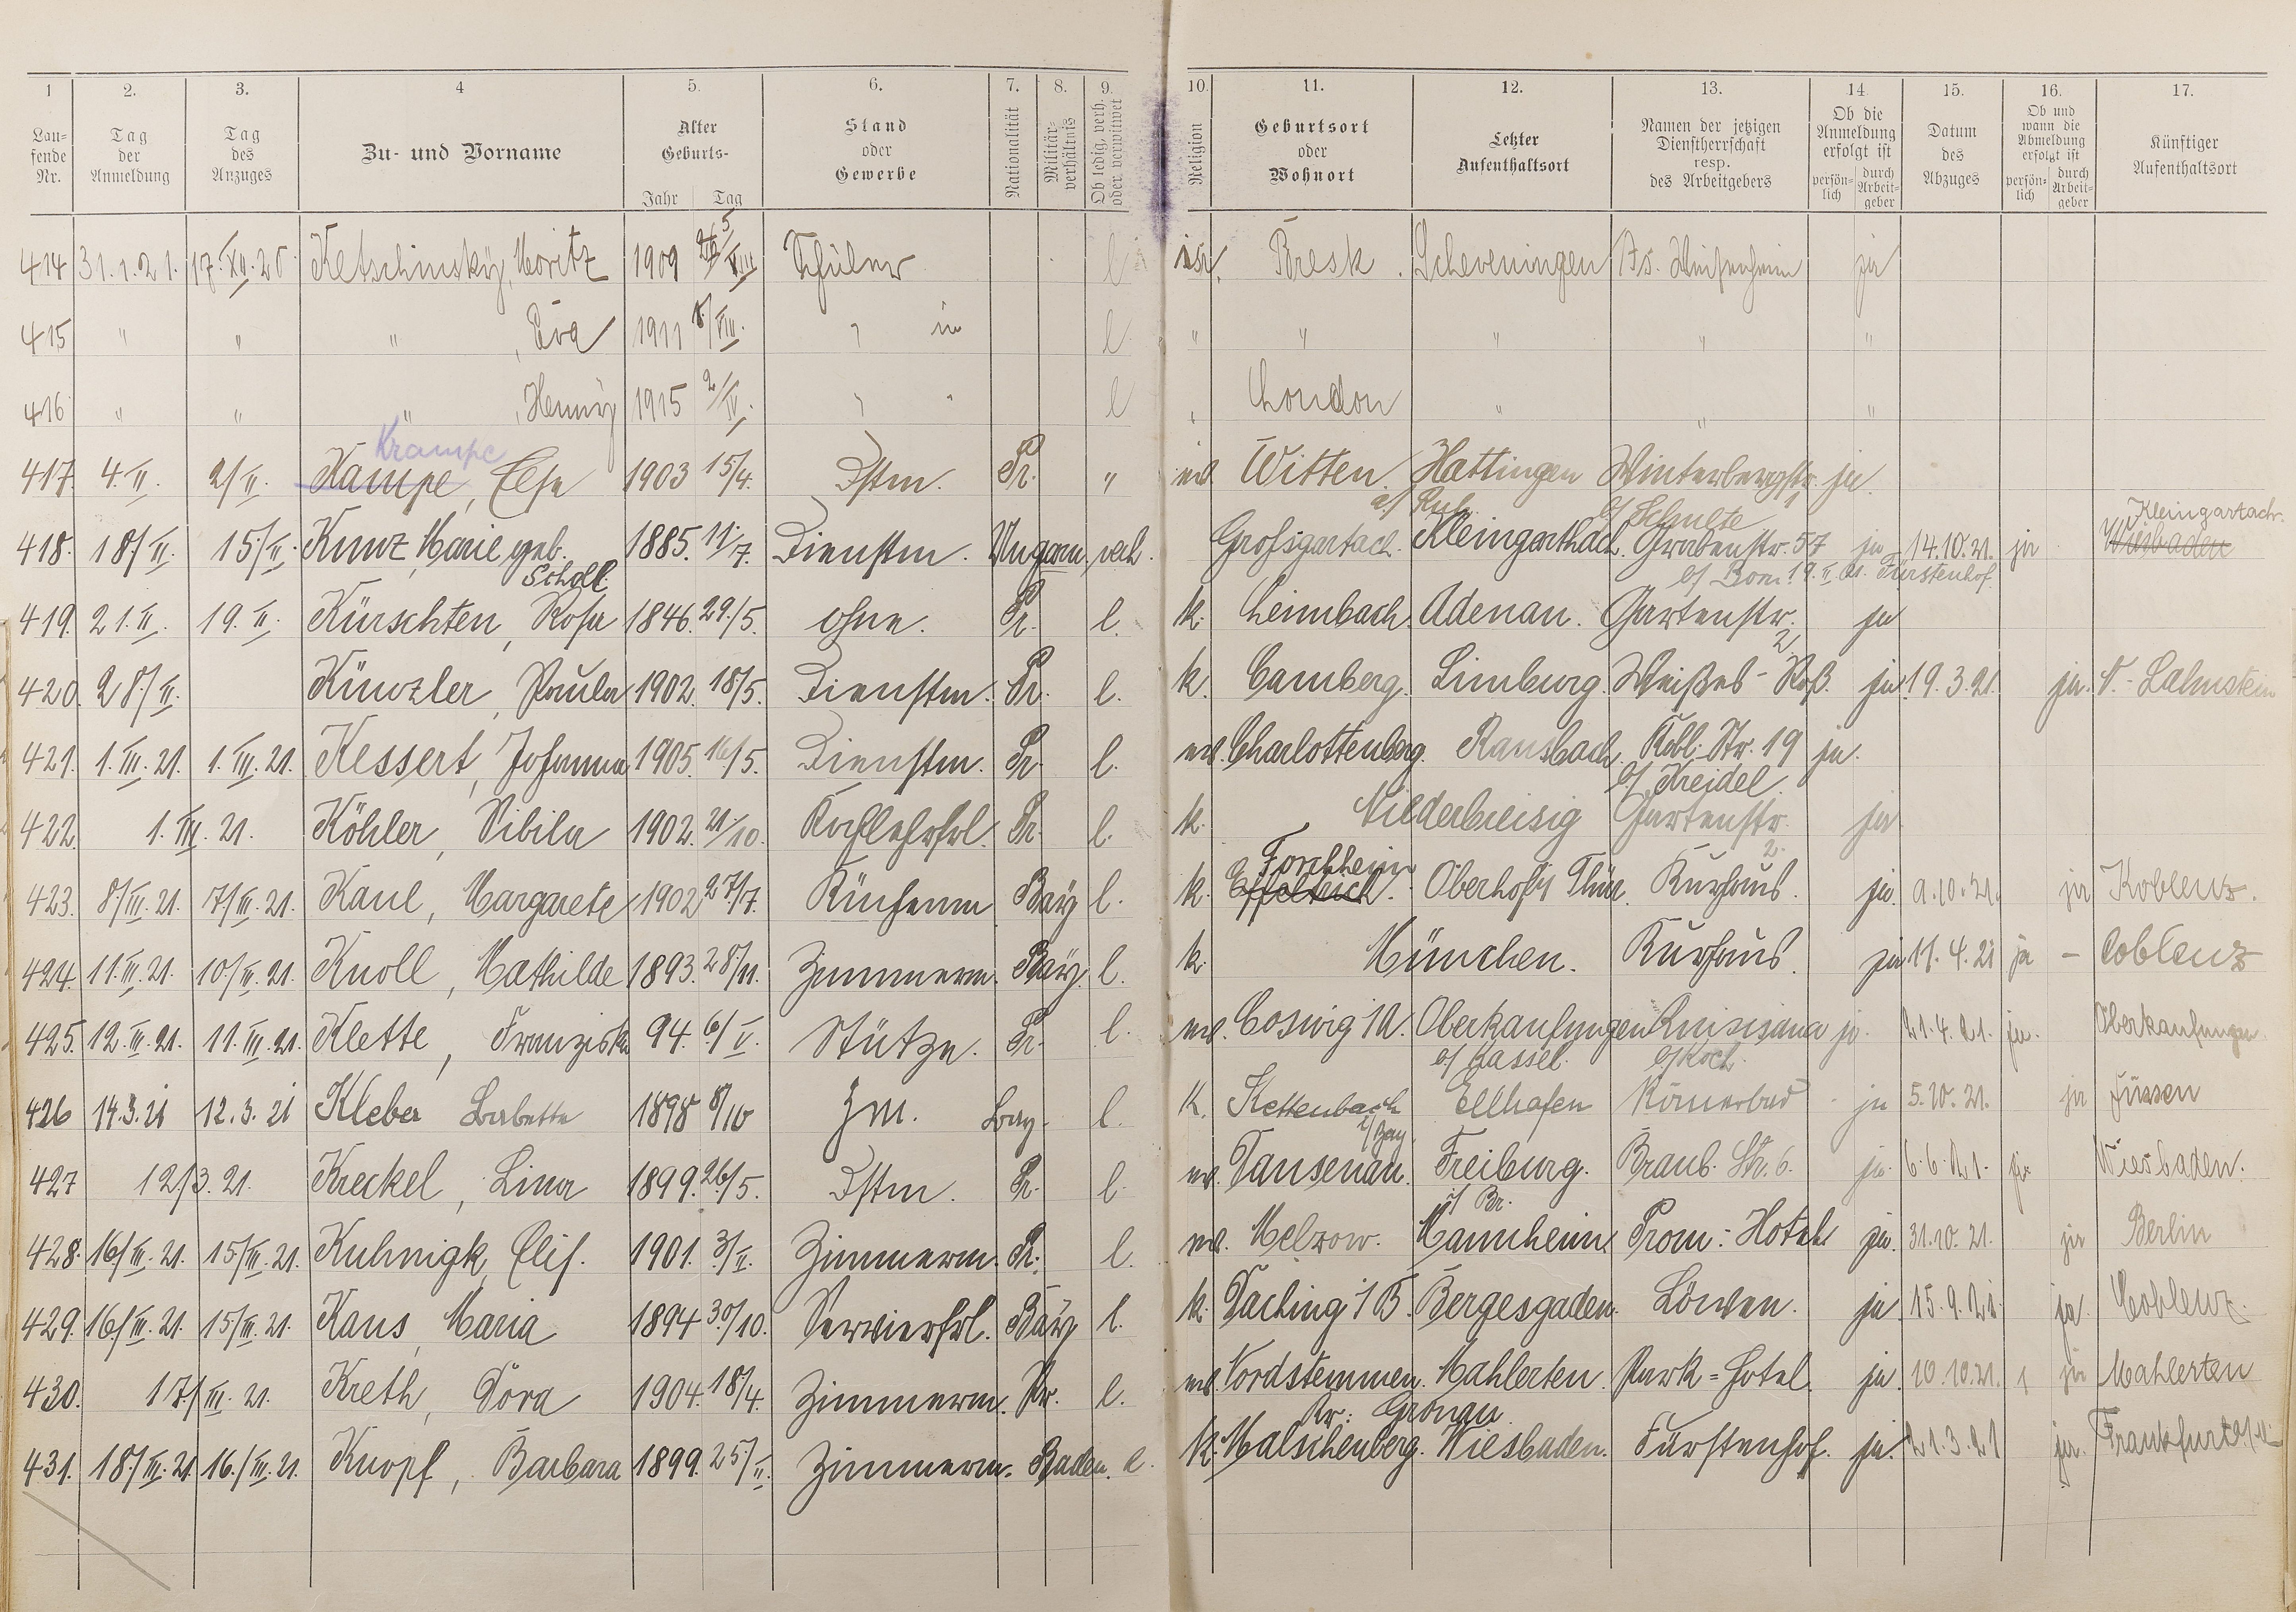 1 2. 3. 4 5. 6. 7. 8. 9. 10. 11. 12. 13. 14. 15. 16. 17.
Lau-fende Nr. Tag der Anmeldung Tag des Anzuges Zu- und Vorname Alter Geburts- Jahr Tag Stand oder Gewerbe Nationalität Militär-verhältnis Ob ledig, verh. oder verwitwet Religion Geburtsort oder Wohnort Letzter Aufenthaltsort Namen der jetzigen Dienstherrschaft resp. des Arbeitgebers Ob die Anmeldung erfolgt ist persön-lich durch Arbeit-geber Datum des Abzuges Ob und wann die Abmeldung erfolgt ist persön-lich durch Arbeit-geber Künftiger Aufenthaltsort
414 31.1.21. 17.XII.20. Ketschinsky, Moritz 1909 VIII Schüler l isr. Bresk. Scheveningen ja
415 " " " , Eva 1911 8/VIII. " in l " " " " "
416 " " " , Henny 1915 2/IV. " " l " London " " "
Krampe
417. 4.II. 2/II. Kampe, Else 1903 15/4. Dstm. Pr. " ev. Witten. Hattingen Winterbergstr. 1 ja.
a/ Ruhr b/ Schulte
418. 18/II. 15/II. Kunz, Marie geb. 1885. 11./7. Dienstm. Ungarn. verh. Großgartach. Kleingarthach. Grabenstr. 57 ja 14.10.21. ja Kleingartach. Wiesbaden
Scholl. b/ Bom 19.II.21. Fürstenhof.
419. 21.II. 19.II. Kürschten, Rosa 1846. 29./5. ohne. Pr. l. k. Leimbach. Adenau. Gartenstr. 2. ja
420. 28/II. Künzler, Paula 1902. 18/5. Dienstm. Pr. l. k. Camberg. Limburg. Weißes-Roß. ja 19.3.21. ja. N.-Lahnstein
421. 1.III.21. 1.III.21. Kessert, Johanna 1905. 16/5. Dienstm. Pr. l. ev. Charlottenberg. Ransbach. Kobl. Str. 19 ja.
b/ Kreidel.
422. 1.III.21. Köhler, Sibila 1902. 21./10. Kochlehrfrl. Pr. l. k. Niederbreisig Gartenstr. 2. ja
Forchheim
423. 8/III.21. 7/III.21. Kaul, Margarete 1902 27/7. Küchenm Bay. l. k. Effeltrich. Oberhof i/ Thür. Kurhaus. ja. 9.10.21. ja Koblenz.
424. 11.III.21. 10/III.21. Knoll, Mathilde 1893. 28/11. Zimmerm. Bay. l. k. München. Kurhaus. ja 11.4.21 ja - Coblenz
425. 12.III.21. 11.III.21. Klette, Franziska 94. 6/V. Stütze. Pr. l. ev. Coswig i A. Oberkaufungen Quisisana ja. 21.4.21. ja. Oberkaufungen
b/ Kassel. b/ Koch.
426 14.3.21 12.3.21 Kleber Babette 1898 8/10 Zm. Bay. l. k. Kettenbach Ellhofen Römerbad ja 5.10.21. ja Füssen
i/ Bay.
427 12/3.21. Kreckel, Lina 1899. 26/5. Dstm. Pr. l. ev. Dausenau. Freiburg. Braub. Str. 6. ja. 6.6.21. ja Wiesbaden.
i/ Br.
428. 16/III.21. 15/III.21. Kuhnigk, Elis. 1901. 3/II. Zimmerm. Pr. l. ev. Melzow. Mannheim. Prom.: Hotel ja. 31.10.21. ja Berlin
429. 16/III.21. 15/III.21. Kaus, Maria 1894 30/10. Servierfrl. Bay l. k. Daching i B. Bergesgaden. Löwen. ja. 15.9.21. ja. Coblenz.
430. 17/III.21. Kreth, Dora 1904. 18/4. Zimmerm. Pr. l. ev. Nordstemmen. Mahlerten. Park=Hotel. ja. 10.10.21. ja Mahlerten
Kr: Gronau
431. 18/III.21 16./III.21. Knopf, Barbara 1899. 25/II. Zimmerm. Baden. l. k. Malschenberg. Wiesbaden. Fürstenhof. ja. 21.3.21 ja. Frankfurt a/M